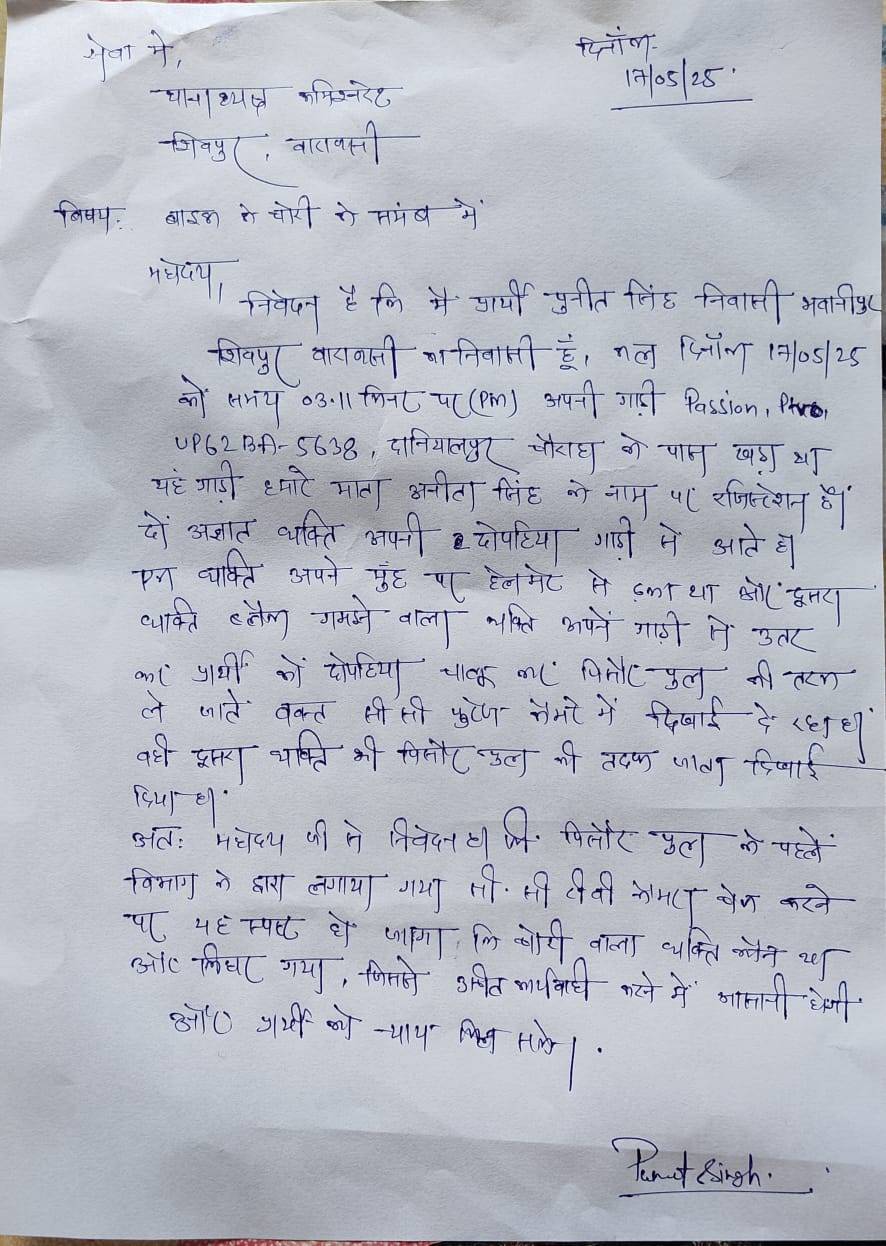 सेवा में,
दिनाँक-
17/05/25.
थानाध्यक्ष कमिश्नरेट
शिवपुर, वाराणसी
विषय: बाइक के चोरी के समंब में
महोदय,
निवेदन है कि मैं प्रार्थी पुनीत सिंह निवासी भवानीपुर
शिवपुर वाराणसी का निवासी हूँ, कल दिनाँक 17/05/25
को समय 03.11 मिनट पर (PM) अपनी गाड़ी Passion, Pro,
UP62 5638, दानियालपुर चौराहा के पास खड़ा था
यह गाड़ी हमारे माता अनीता सिंह के नाम पर रजिस्टेशन है।
दो अज्ञात व्यक्ति अपनी दोपहिया गाड़ी से आते है
एक व्यक्ति अपने मुँह पर हेलमेट से ढ़का था और दूसरा
व्यक्ति ब्लैक गमछे वाला व्यक्ति अपने गाड़ी से उतर
कर प्रार्थी को दोपहिया चालू कर पिसौर पुल की तरफ
ले जाते वक्त सी सी फुटेज कैमरे में दिखाई दे रहा है।
वही दूसरा व्यक्ति भी पिसौर पुल की तरफ जाता दिखाई
दिया है।
अतः महोदय जी से निवेदन है कि पिसौर पुल के पहले
विभाग के द्वारा लगाया गया सी. सी टीवी कैमरा चेक करने
पर यह स्पष्ट हो जाएगा कि चोरी वाला व्यक्ति कौन था
और किधर गया, जिससे उचित कार्यवाही करने में आसानी होगी
और प्रार्थी को न्याय मिल सके।
Punit Singh.